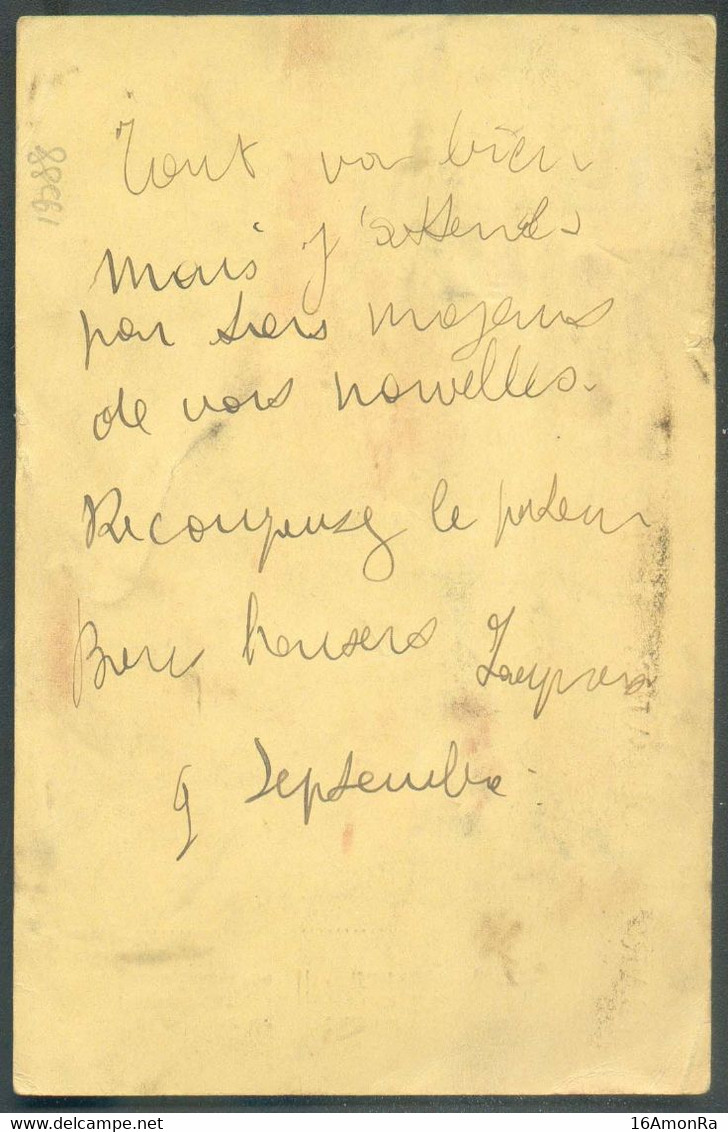 Tout va bien
mais j'attends
par tiers moyens
de vos nouvelles.
Recompensez le porteur
Bons baisers
9 Septembre
19388
16AmonRa